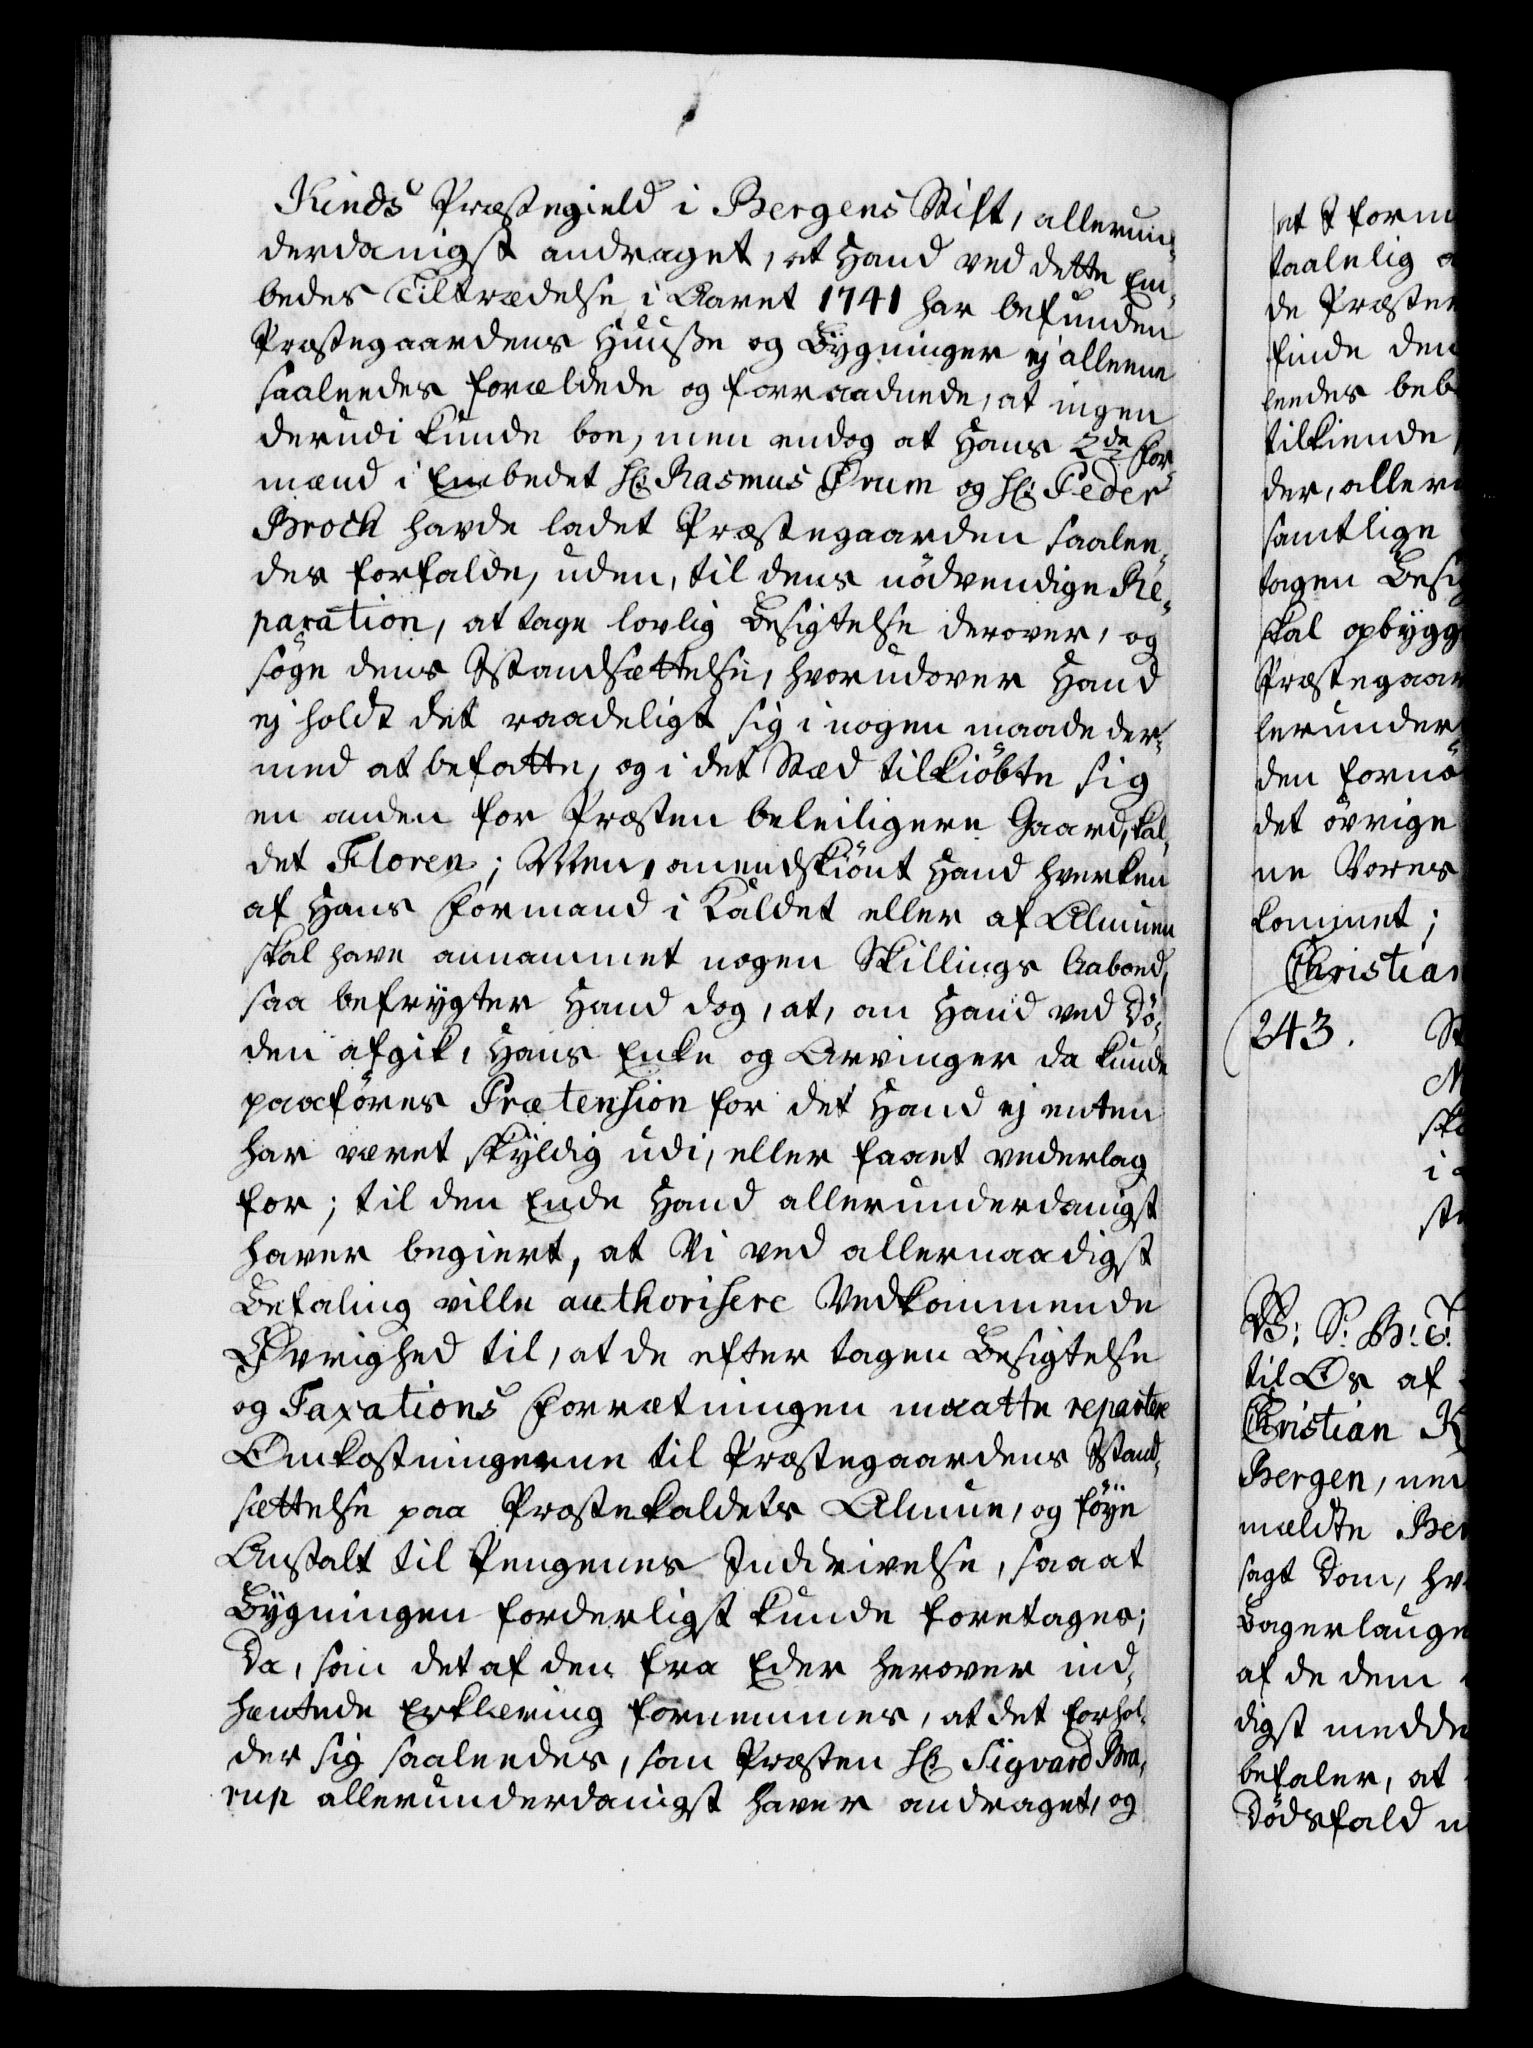 Kinds Præstegield i Bergens Stift, allerun-
derdanigst andraget, at Hand ved dette Em-
bedes Tiltrædelse i Aaret 1741 har befunden
Præstegaardens Huuße og Bygninger ej alleene
saaleedes forældede og forraadnede, at ingen
derudi kunde boe, men endog at Hans 2de For-
mænd i Embedet Hr Rasmus Ørum og Hr Peder
Broch havde ladet Præstegaarden saalee-
des forfalde, uden, til dens nödvendige Re-
paration, at tage lovlig Besigtelse derover, og
søge dens Istandsættelse, hvorudover Hand
ej holdt det raadeligt sig i nogen maade der-
med at befatte, og i det Sted tilkiöbte sig
en anden for Præsten beleiligere Gaard, kal-
det Floren; Men, omendskiönt Hand hverken
af Hans Formand i Kaldet eller af Almuen
skal have annammet nogen Skillings Aaboed,
saa befrygter Hand dog, at, om Hand ved Dö-
den afgik, Hans Enke og Arvinger da kunde
paaföres Prætension for det Hand ej enten
har været skyldig udi, eller faaet vederlag
for; til den Ende Hand allerunderdanigst
haver begiert, at Vi ved allernaadigst
Befaling ville authorisere Vedkommende
Øvrighed til, at de efter tagen Besigtelse
og Taxations Forretningen maatte repartere
Omkostningerne til Præstegaardens Istand-
sættelse paa Præstekaldets Almue, og föye
Anstalt til Pengenes Inddrivelse, saa at
Bygningen forderligst kunde foretages;
Da, som det af den fra Eder herover ind-
hentede Erklæring fornemmes, at det forhol-
der sig saaleedes, som Præsten Hr Sigvard Bra-
rup allerunderdanigst haver andraget, og
at I form
taalelig
de Præste
finde den
leedes beb
tilkiende
der, aller
samtlige
tagen Besig
skal opbygg
Præstegaar
lerunder
den fornö
det övrige
ne Vores
kommet;
Christian
243. St
M
ska
i
st
W: S: B: T:
til Os af
Christian K
Bergen, ned
mældte Ber
sagt Dom, hv
Bagerlauge
af de dem
digst medde
befaler, at
Dödsfald